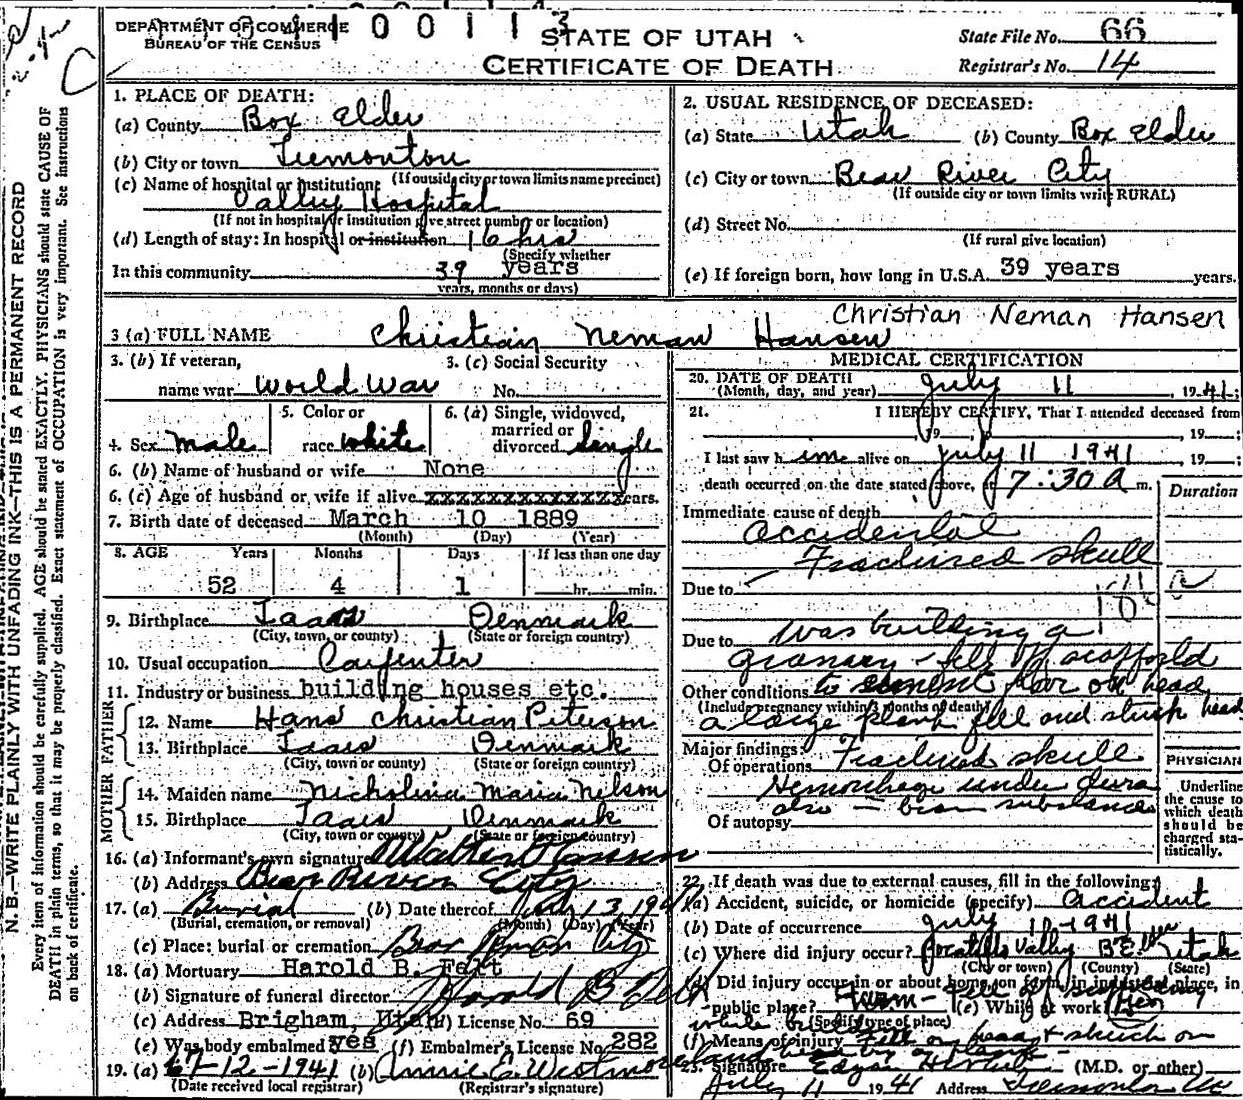 DEPARTMENT OF COMMERCE
BUREAU OF THE CENSUS
STATE OF UTAH
CERTIFICATE OF DEATH
State File No. 66
Registrar's No. 14
N.B.—WRITE PLAINLY WITH UNFADING INK—THIS IS A PERMANENT RECORD
Every item of information should be carefully supplied. AGE should be stated EXACTLY. PHYSICIANS should state CAUSE OF
DEATH in plain terms, so that it may be properly classified. Exact statement of OCCUPATION is very important. See instructions
on back of certificate.
1. PLACE OF DEATH:
(a) County Box Elder
(b) City or town Tremonton
(If outside city or town limits name precinct)
(c) Name of hospital or institution:
Valley Hospital
(If not in hospital or institution give street number or location)
(d) Length of stay: In hospital or institution 16 hrs
(Specify whether
In this community 39 years
years, months or days)
2. USUAL RESIDENCE OF DECEASED:
(a) State Utah (b) County Box Elder
(c) City or town Bear River City
(If outside city or town limits write RURAL)
(d) Street No.
(If rural give location)
(e) If foreign born, how long in U.S.A. 39 years years.
Christian Neman Hansen
3 (a) FULL NAME Christian Neman Hansen
3. (b) If veteran, name war World War
3. (c) Social Security No.
4. Sex male
5. Color or race white
6. (a) Single, widowed, married or divorced single
6. (b) Name of husband or wife None
6. (c) Age of husband or wife if alive XXXXXXXXXXXXX years.
7. Birth date of deceased March 10 1889
(Month) (Day) (Year)
8. AGE Years Months Days If less than one day
52 4 1 hr. min.
9. Birthplace Taars Denmark
(City, town, or county) (State or foreign country)
10. Usual occupation Carpenter
11. Industry or business building houses etc.
FATHER
12. Name Hans Christian Peterson
13. Birthplace Taars Denmark
(City, town or county) (State or foreign country)
MOTHER
14. Maiden name Nicholina Maria Nelson
15. Birthplace Taars Denmark
(City, town or county) (State or foreign country)
16. (a) Informant's own signature Walter Hansen
(b) Address Bear River City
17. (a) Burial (b) Date thereof July 13 1941
(Burial, cremation, or removal) (Month) (Day) (Year)
(c) Place: burial or cremation Bear River City
18. (a) Mortuary Harold B. Felt
(b) Signature of funeral director Harold B Felt
(c) Address Brigham, Utah (d) License No. 69
(e) Was body embalmed yes (f) Embalmer's License No. 282
19. (a) 7-12-1941 (b) Annie C. Westmoreland
(Date received local registrar) (Registrar's signature)
MEDICAL CERTIFICATION
20. DATE OF DEATH
(Month, day, and year) July 11 1941;
21. I HEREBY CERTIFY, That I attended deceased from
, 19 , to , 19 ;
I last saw him alive on July 11 1941, 19 ;
death occurred on the date stated above, at 7:30 a m.
Duration
Immediate cause of death
accidental
Fractured skull
Due to
Due to was building a
granary - fell off scaffold
Other conditions to cement floor on head
(Include pregnancy within 3 months of death)
a large plank fell and struck head
Major findings:
Of operations Fractured skull
Hemorrhage under dura
also - brain substance
Of autopsy
PHYSICIAN
Underline
the cause to
which death
should be
charged sta-
tistically.
22. If death was due to external causes, fill in the following:
(a) Accident, suicide, or homicide (specify) accident
(b) Date of occurrence July 1941
(c) Where did injury occur? Pocatello Valley B E Utah
(City or town) (County) (State)
(d) Did injury occur in or about home, on farm, in industrial place, in
public place? Farm
(Specify type of place) (e) While at work?
(f) Means of injury Fell on head & struck on
head by a plank
23. Signature (M.D. or other)
July 11 1941 Address Tremonton Ut